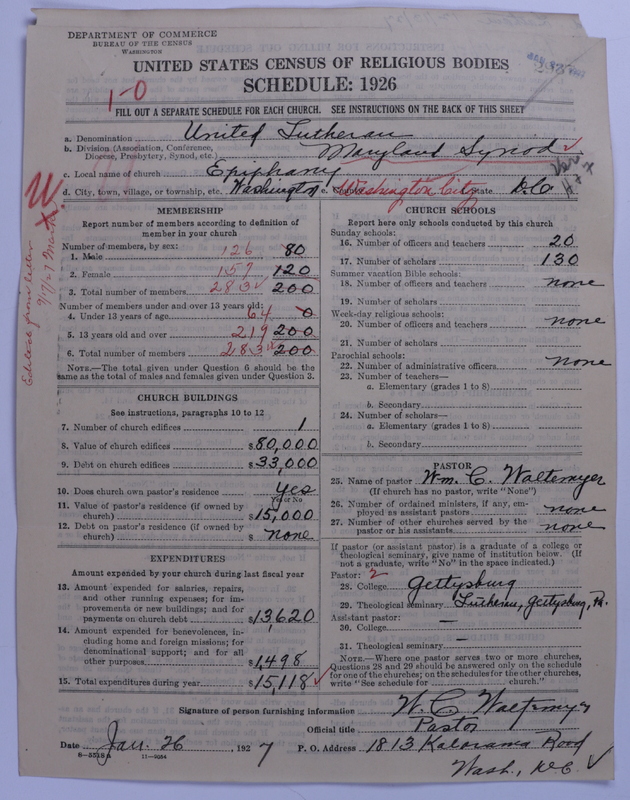 DEPARTMENT OF COMMERCE
BUREAU OF THE CENSUS
WASHINGTON
UNITED STATES CENSUS OF RELIGIOUS BODIES
SCHEDULE: 1926
1-0
FILL OUT A SEPARATE SCHEDULE FOR EACH CHURCH. SEE INSTRUCTIONS ON THE BACK OF THIS SHEET
a. Denomination United Lutheran
b. Division (Association, Conference, Diocese, Presbytery, Synod, etc.) Maryland Synod
c. Local name of church Epiphany
d. City, town, village, or township, etc. Washington e. Washington City State D.C.
MEMBERSHIP
Report number of members according to definition of
member in your church
Number of members, by sex:
1. Male 126 80
2. Female 157 120
3. Total number of members 283 200
Number of members under and over 13 years old:
4. Under 13 years of age 64 0
5. 13 years old and over 219 200
6. Total number of members 283 200
NOTE.—The total given under Question 6 should be the
same as the total of males and females given under Question 3.
CHURCH BUILDINGS
See instructions, paragraphs 10 to 12
7. Number of church edifices 1
8. Value of church edifices $80,000
9. Debt on church edifices $33,000
10. Does church own pastor's residence yes
Yes or No
11. Value of pastor's residence (if owned by
church) $15,000
12. Debt on pastor's residence (if owned by
church) $ none
EXPENDITURES
Amount expended by your church during last fiscal year
13. Amount expended for salaries, repairs,
and other running expenses; for im-
provements or new buildings; and for
payments on church debt $13,620
14. Amount expended for benevolences, in-
cluding home and foreign missions; for
denominational support; and for all
other purposes $1,498
15. Total expenditures during year $15,118
CHURCH SCHOOLS
Report here only schools conducted by this church
Sunday schools:
16. Number of officers and teachers 20
17. Number of scholars 130
Summer vacation Bible schools:
18. Number of officers and teachers none
19. Number of scholars
Week-day religious schools:
20. Number of officers and teachers none
21. Number of scholars
Parochial schools:
22. Number of administrative officers none
23. Number of teachers—
a. Elementary (grades 1 to 8)
b. Secondary
24. Number of scholars—
a. Elementary (grades 1 to 8)
b. Secondary
PASTOR
25. Name of pastor Wm. C. Waltemyer
(If church has no pastor, write "None")
26. Number of ordained ministers, if any, em-
ployed as assistant pastors none
27. Number of other churches served by the
pastor or his assistants none
If pastor (or assistant pastor) is a graduate of a college or
theological seminary, give name of institution below. (If
not a graduate, write "No" in the space indicated.)
Pastor: 2
28. College Gettysburg
29. Theological seminary Lutheran, Gettysburg, Pa.
Assistant pastor:
30. College —
31. Theological seminary —
NOTE.—Where one pastor serves two or more churches,
Questions 28 and 29 should be answered only on the schedule
for one of the churches; on the schedules for the other churches,
write "See schedule for church."
Signature of person furnishing information W. C. Waltemyer
Official title Pastor
Date Jan. 26 1927 P. O. Address 1813 Kalorama Road
Wash., D.C.
8-5518a 11-9054